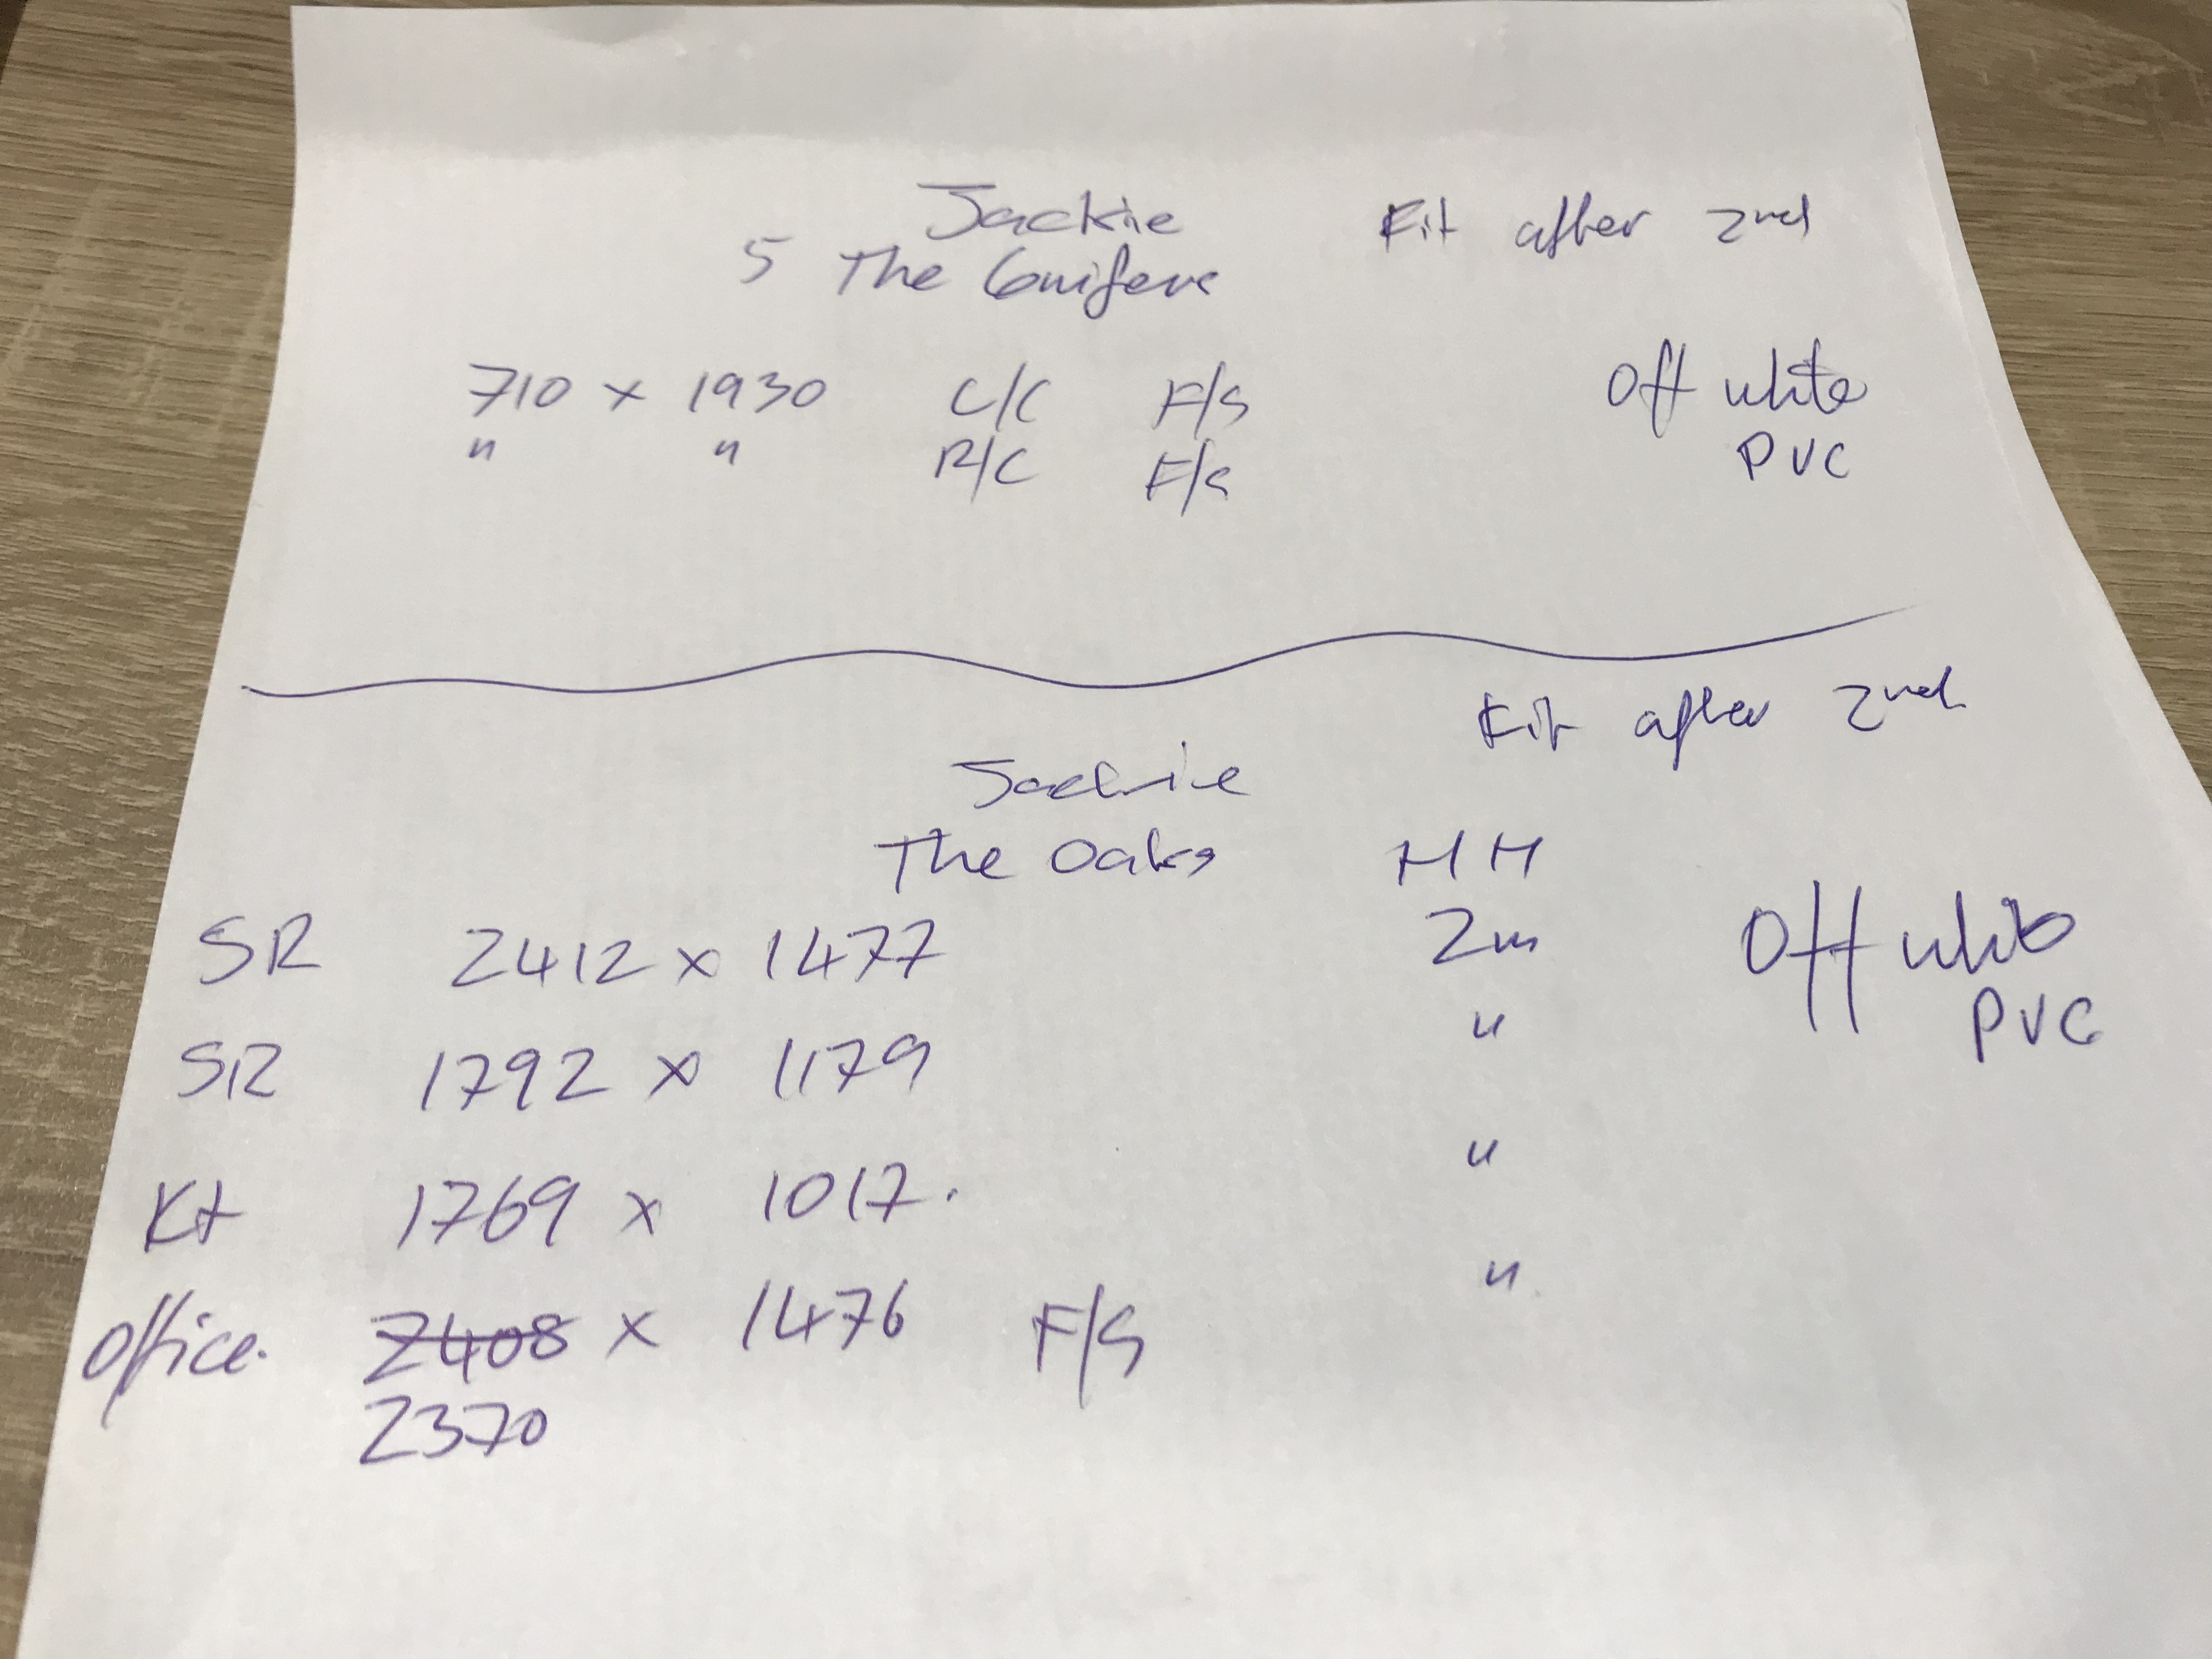 Jackie Fit after 2nd
5 The Conifers
710 x 1930 C/C F/S Off white
" " R/C F/S PVC
Fit after 2nd
Jackie
The Oaks HH
SR 2412 x 1477 2m Off white
SR 1792 x 1179 " PVC
Kt 1769 x 1017. "
Office. 2408 x 1476 F/S "
2370